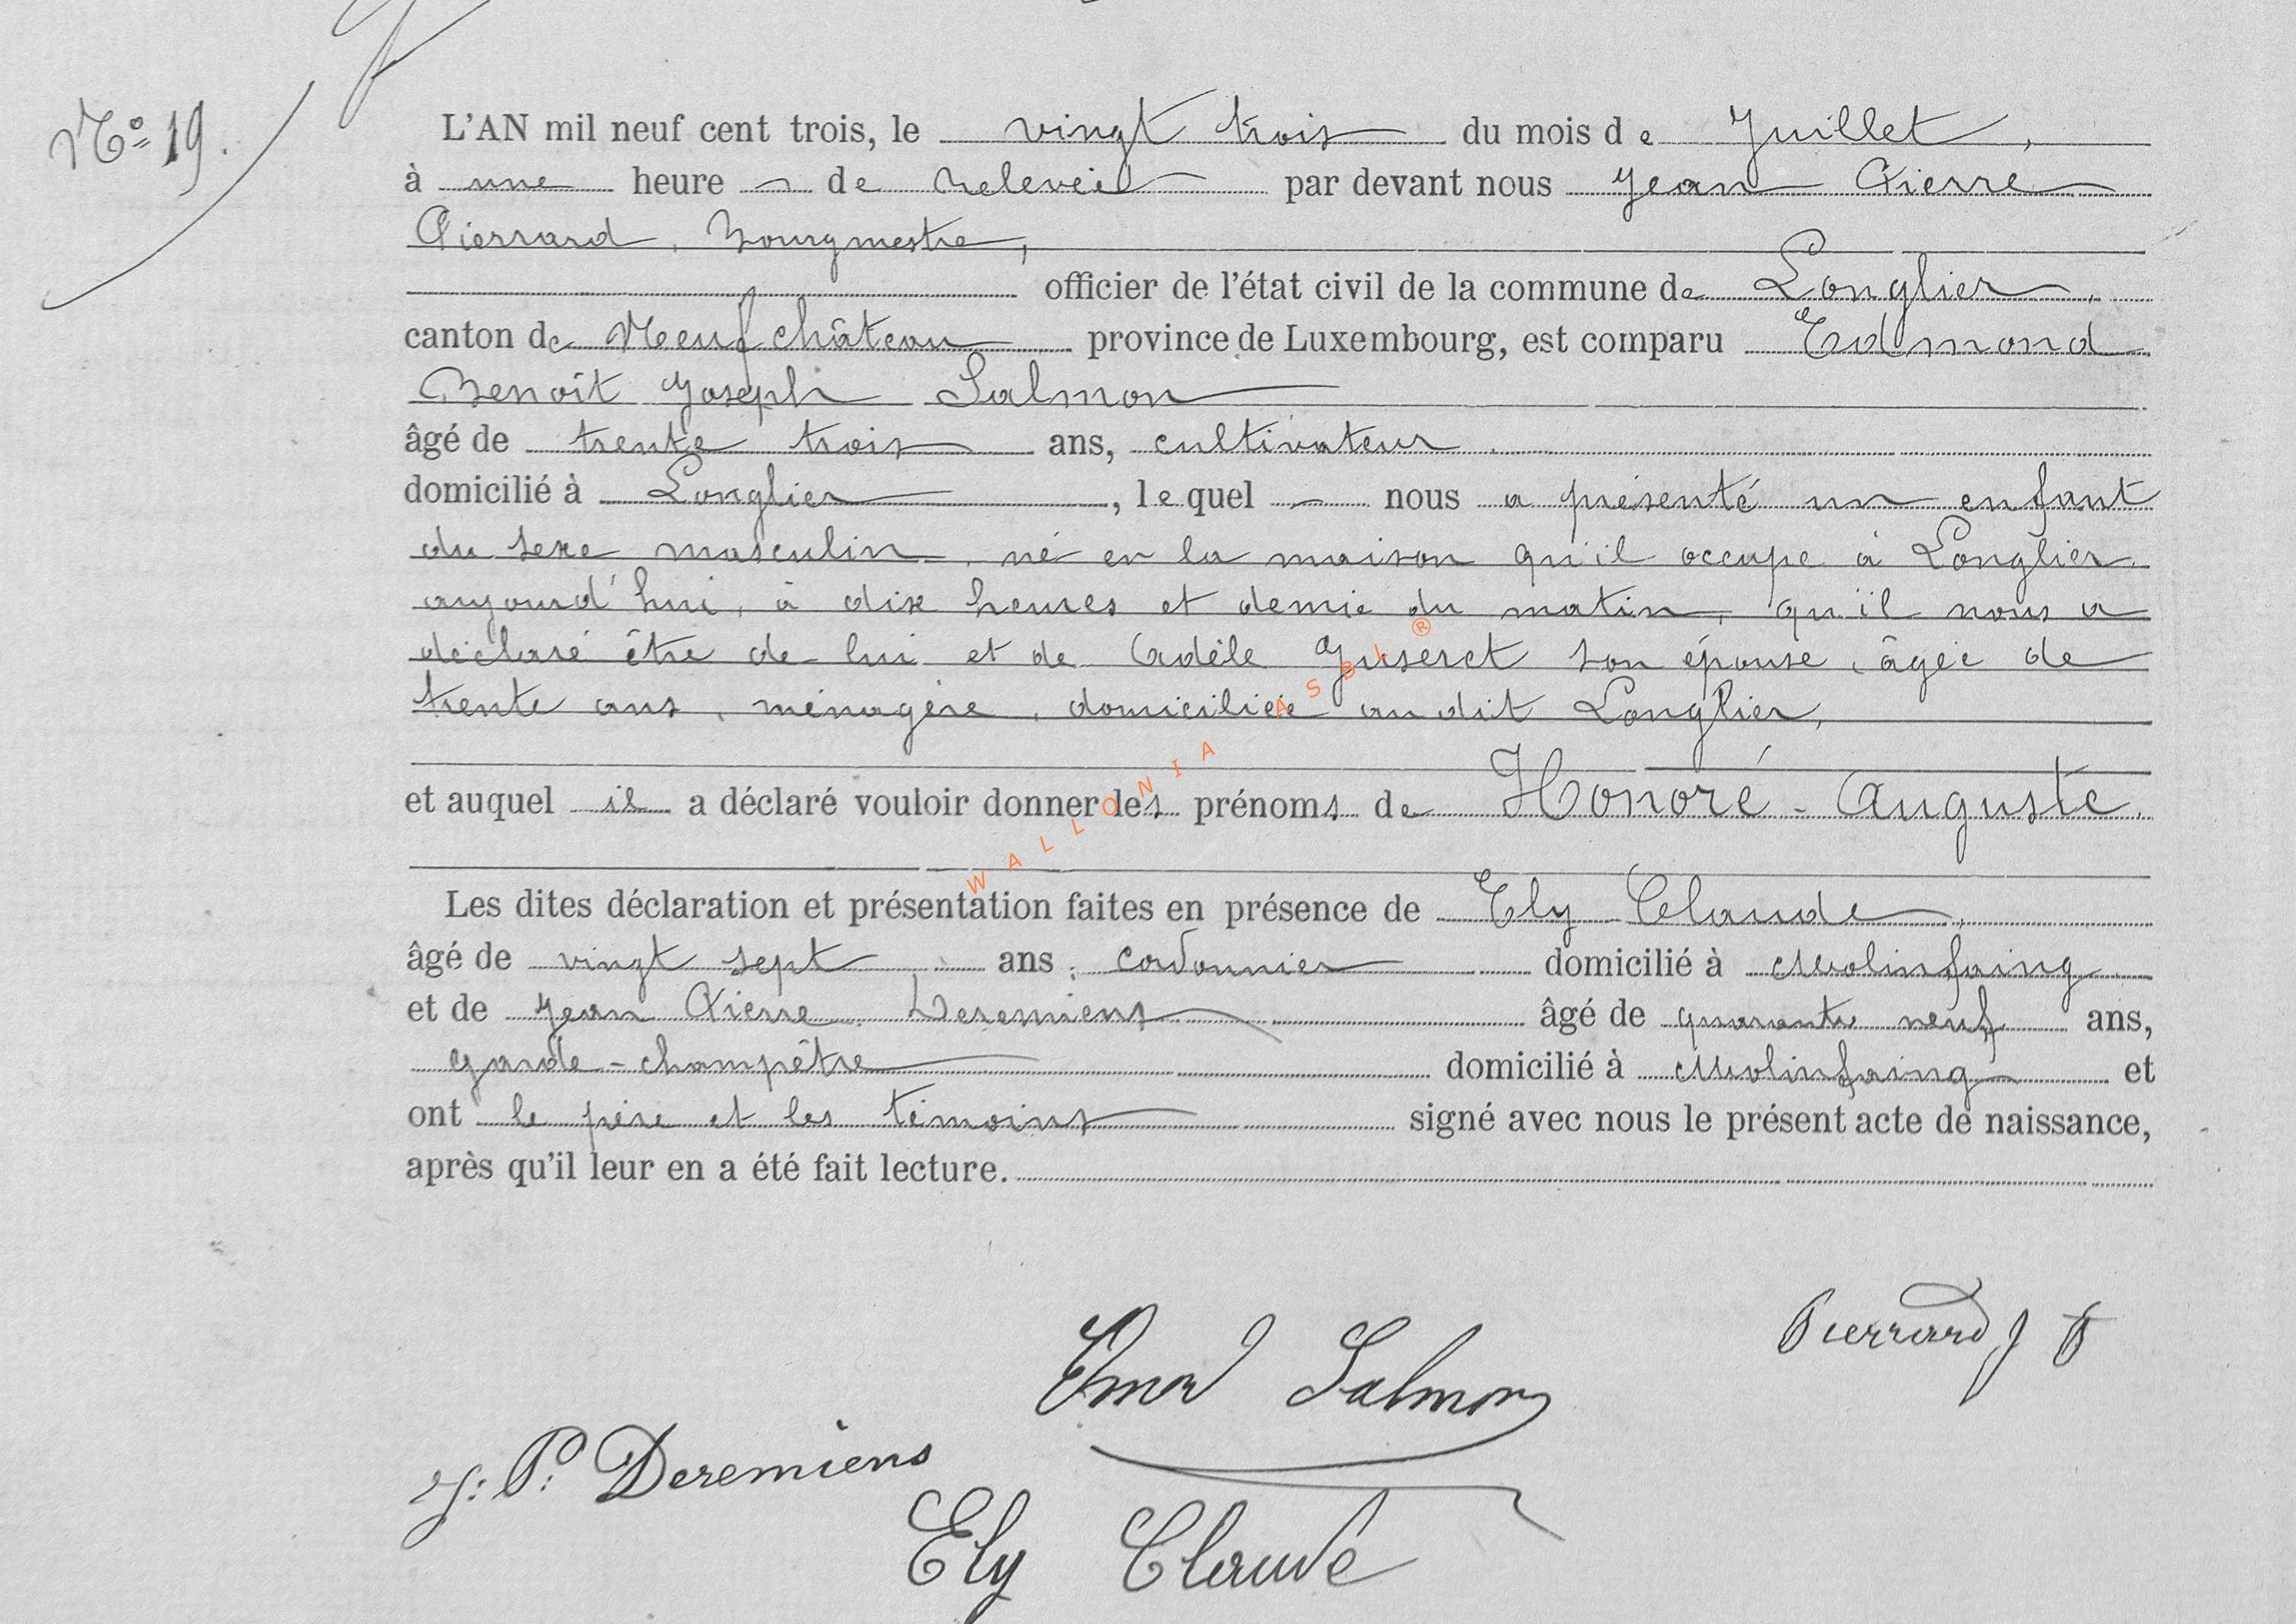 N° 19.
L'AN mil neuf cent trois, le vingt trois du mois de Juillet,
à une heure de relevée par devant nous Jean Pierre
Pierrard, Bourgmestre,
officier de l'état civil de la commune de Longlier,
canton de Neufchâteau province de Luxembourg, est comparu Edmond
Benoît Joseph Salmon
âgé de trente trois ans, cultivateur
domicilié à Longlier, lequel nous a présenté un enfant
du sexe masculin, né en la maison qu'il occupe à Longlier,
aujourd'hui, à dix heures et demie du matin, qu'il nous a
déclaré être de lui et de Adèle Guseret son épouse, âgée de
trente ans, ménagère, domiciliée au dit Longlier,
et auquel il a déclaré vouloir donner les prénoms de Honoré-Auguste.
Les dites déclaration et présentation faites en présence de Ely Claude,
âgé de vingt sept ans, cordonnier domicilié à Molinfaing
et de Jean Pierre Deremiens âgé de quarante neuf ans,
garde-champêtre domicilié à Molinfaing et
ont le père et les témoins signé avec nous le présent acte de naissance,
après qu'il leur en a été fait lecture.
WALLONIA ASBL ®
Pierrard J P
Emond Salmon
J: P: Deremiens
Ely Claude